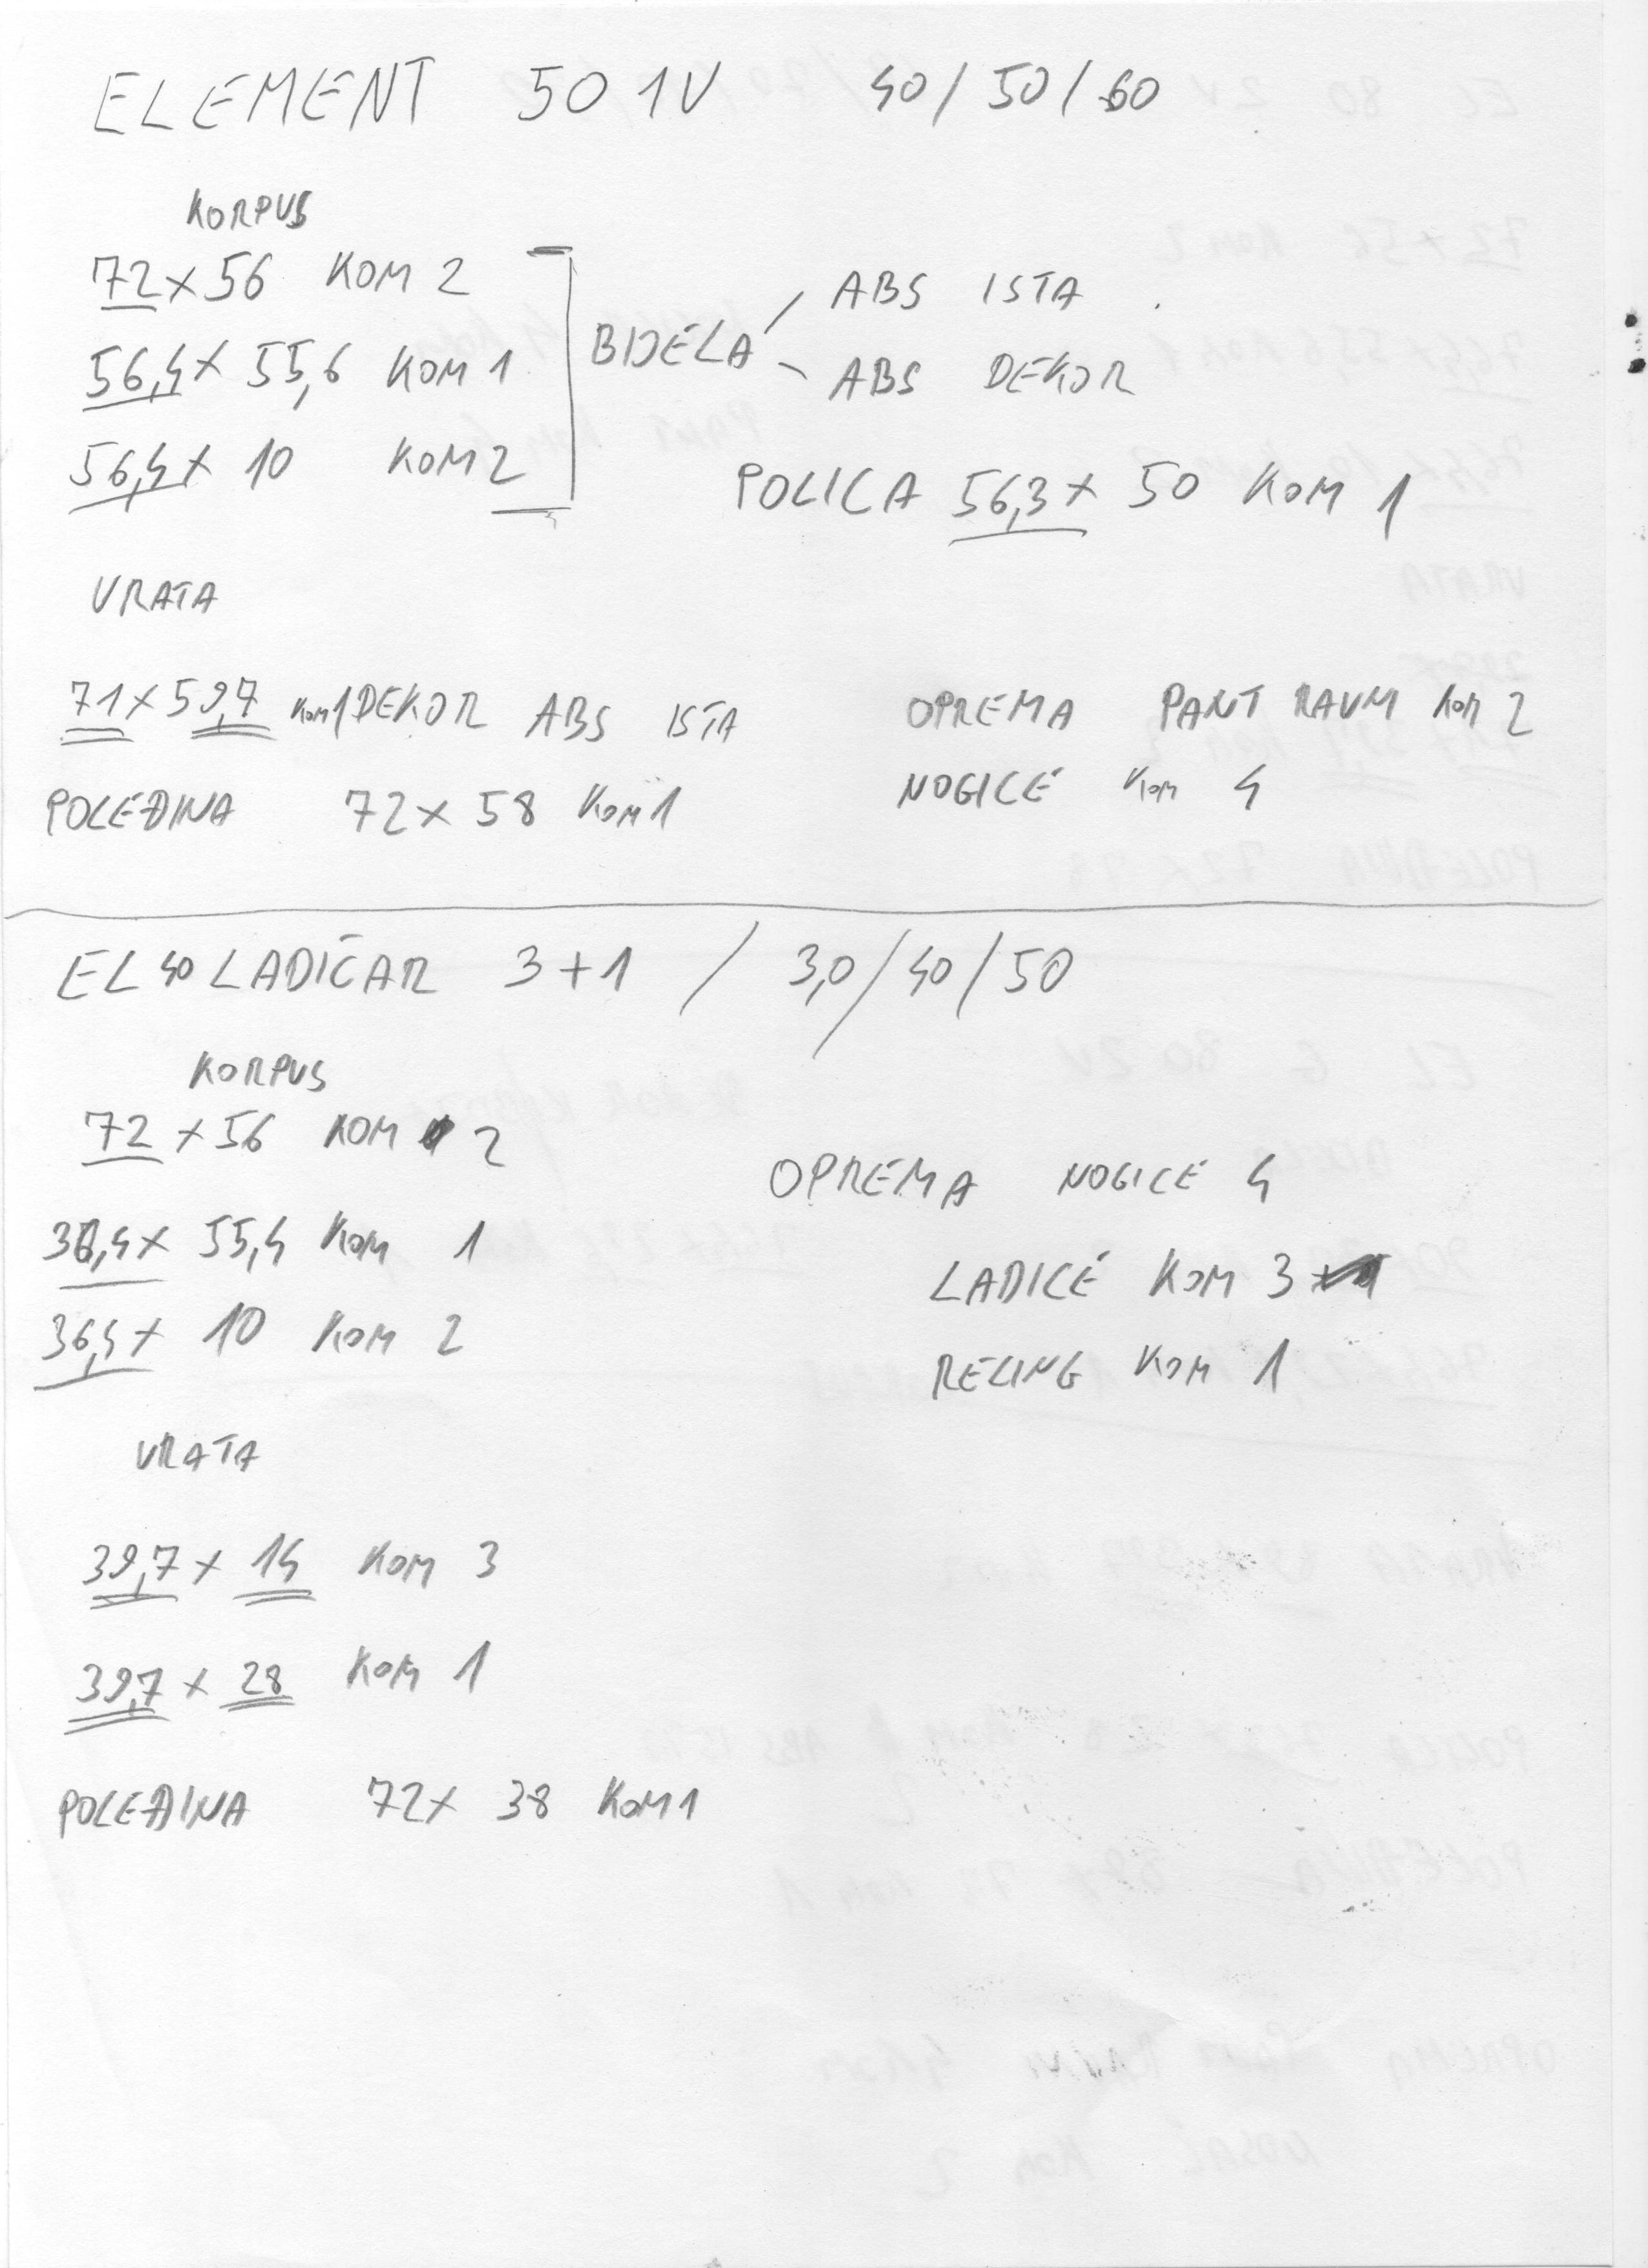 ELEMENT 50 1V 40/50/60
KORPUS
72x56 KOM 2
56,4x 55,6 KOM 1
56,4x 10 KOM 2
BIJELA
ABS ISTA
ABS DEKOR
POLICA 56,3x 50 KOM 1
VRATA
71x59,7 KOM 1 DEKOR ABS ISTA
OPREMA PANT RAVNI KOM 2
NOGICE KOM 4
POLEĐINA 72x58 KOM 1
EL 40 LADIČAR 3+1 / 30/40/50
KORPUS
72x56 KOM 2
36,4x 55,4 KOM 1
36,4x 10 KOM 2
OPREMA NOGICE 4
LADICE KOM 3
RELING KOM 1
VRATA
39,7x 14 KOM 3
39,7x 28 KOM 1
POLEĐINA 72x 38 KOM 1